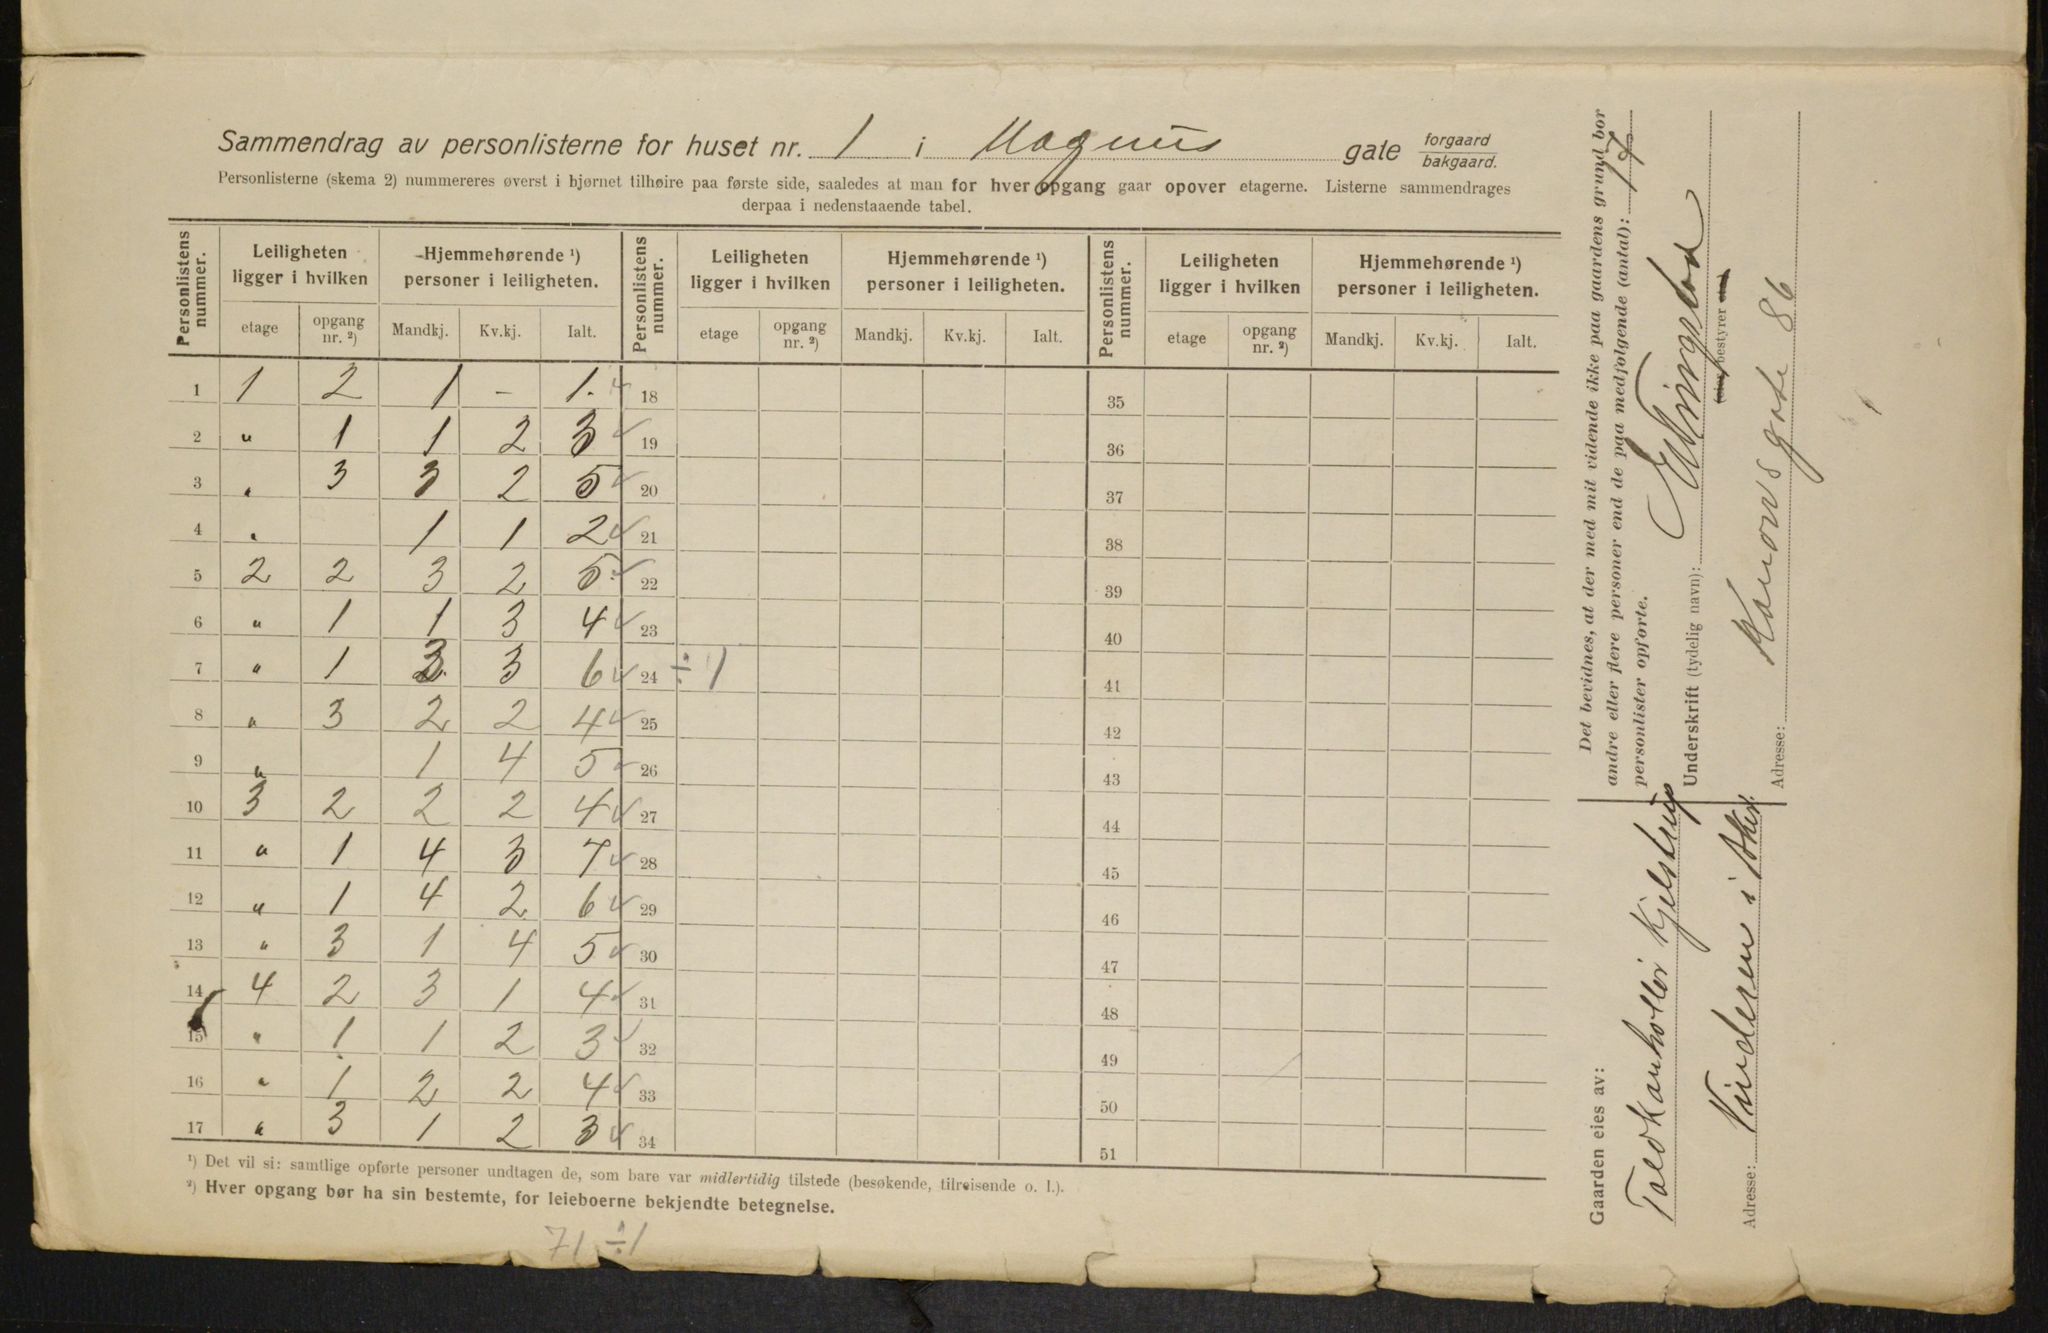 Sammendrag av personlisterne for huset nr. 1 i Magnus gate forgaard bakgaard.
Personlisterne (skema 2) nummereres øverst i hjørnet tilhøire paa første side, saaledes at man for hver opgang gaar opover etagerne. Listerne sammendrages
derpaa i nedenstaaende tabel.
Personlistens nummer. Leiligheten ligger i hvilken Hjemmehørende ¹) personer i leiligheten. Personlistens nummer. Leiligheten ligger i hvilken Hjemmehørende ¹) personer i leiligheten. Personlistens nummer. Leiligheten ligger i hvilken Hjemmehørende ¹) personer i leiligheten.
etage opgang nr. ²) Mandkj. Kv.kj. Ialt. etage opgang nr. ²) Mandkj. Kv.kj. Ialt. etage opgang nr. ²) Mandkj. Kv.kj. Ialt.
1 1 2 1 - 1. 18 35
2 " 1 1 2 3 19 36
3 " 3 3 2 5 20 37
4 " 1 1 2 21 38
5 2 2 3 2 5. 22 39
6 " 1 1 3 4 23 40
7 " 1 3 3 6 24 ÷1 41
8 " 3 2 2 4 25 42
9 " 1 4 5 26 43
10 3 2 2 2 4 27 44
11 " 1 4 3 7 28 45
12 " 1 4 2 6 29 46
13 " 3 1 4 5 30 47
14 4 2 3 1 4 31 48
15 " 1 1 2 3 32 49
16 " 1 2 2 4 33 50
17 " 3 1 2 3 34 51
¹) Det vil si: samtlige opførte personer undtagen de, som bare var midlertidig tilstede (besøkende, tilreisende o. l.).
²) Hver opgang bør ha sin bestemte, for leieboerne bekjendte betegnelse.
71 ÷1
Det bevidnes, at der med mit vidende ikke paa gaardens grund bor
andre eller flere personer end de paa medfølgende (antal): 17
personlister opførte.
Underskrift (tydelig navn):
(eier, bestyrer
Adresse: Kanons gate 86
Gaarden eies av:
Kjelstrup
Adresse: Vinderen i Aker.